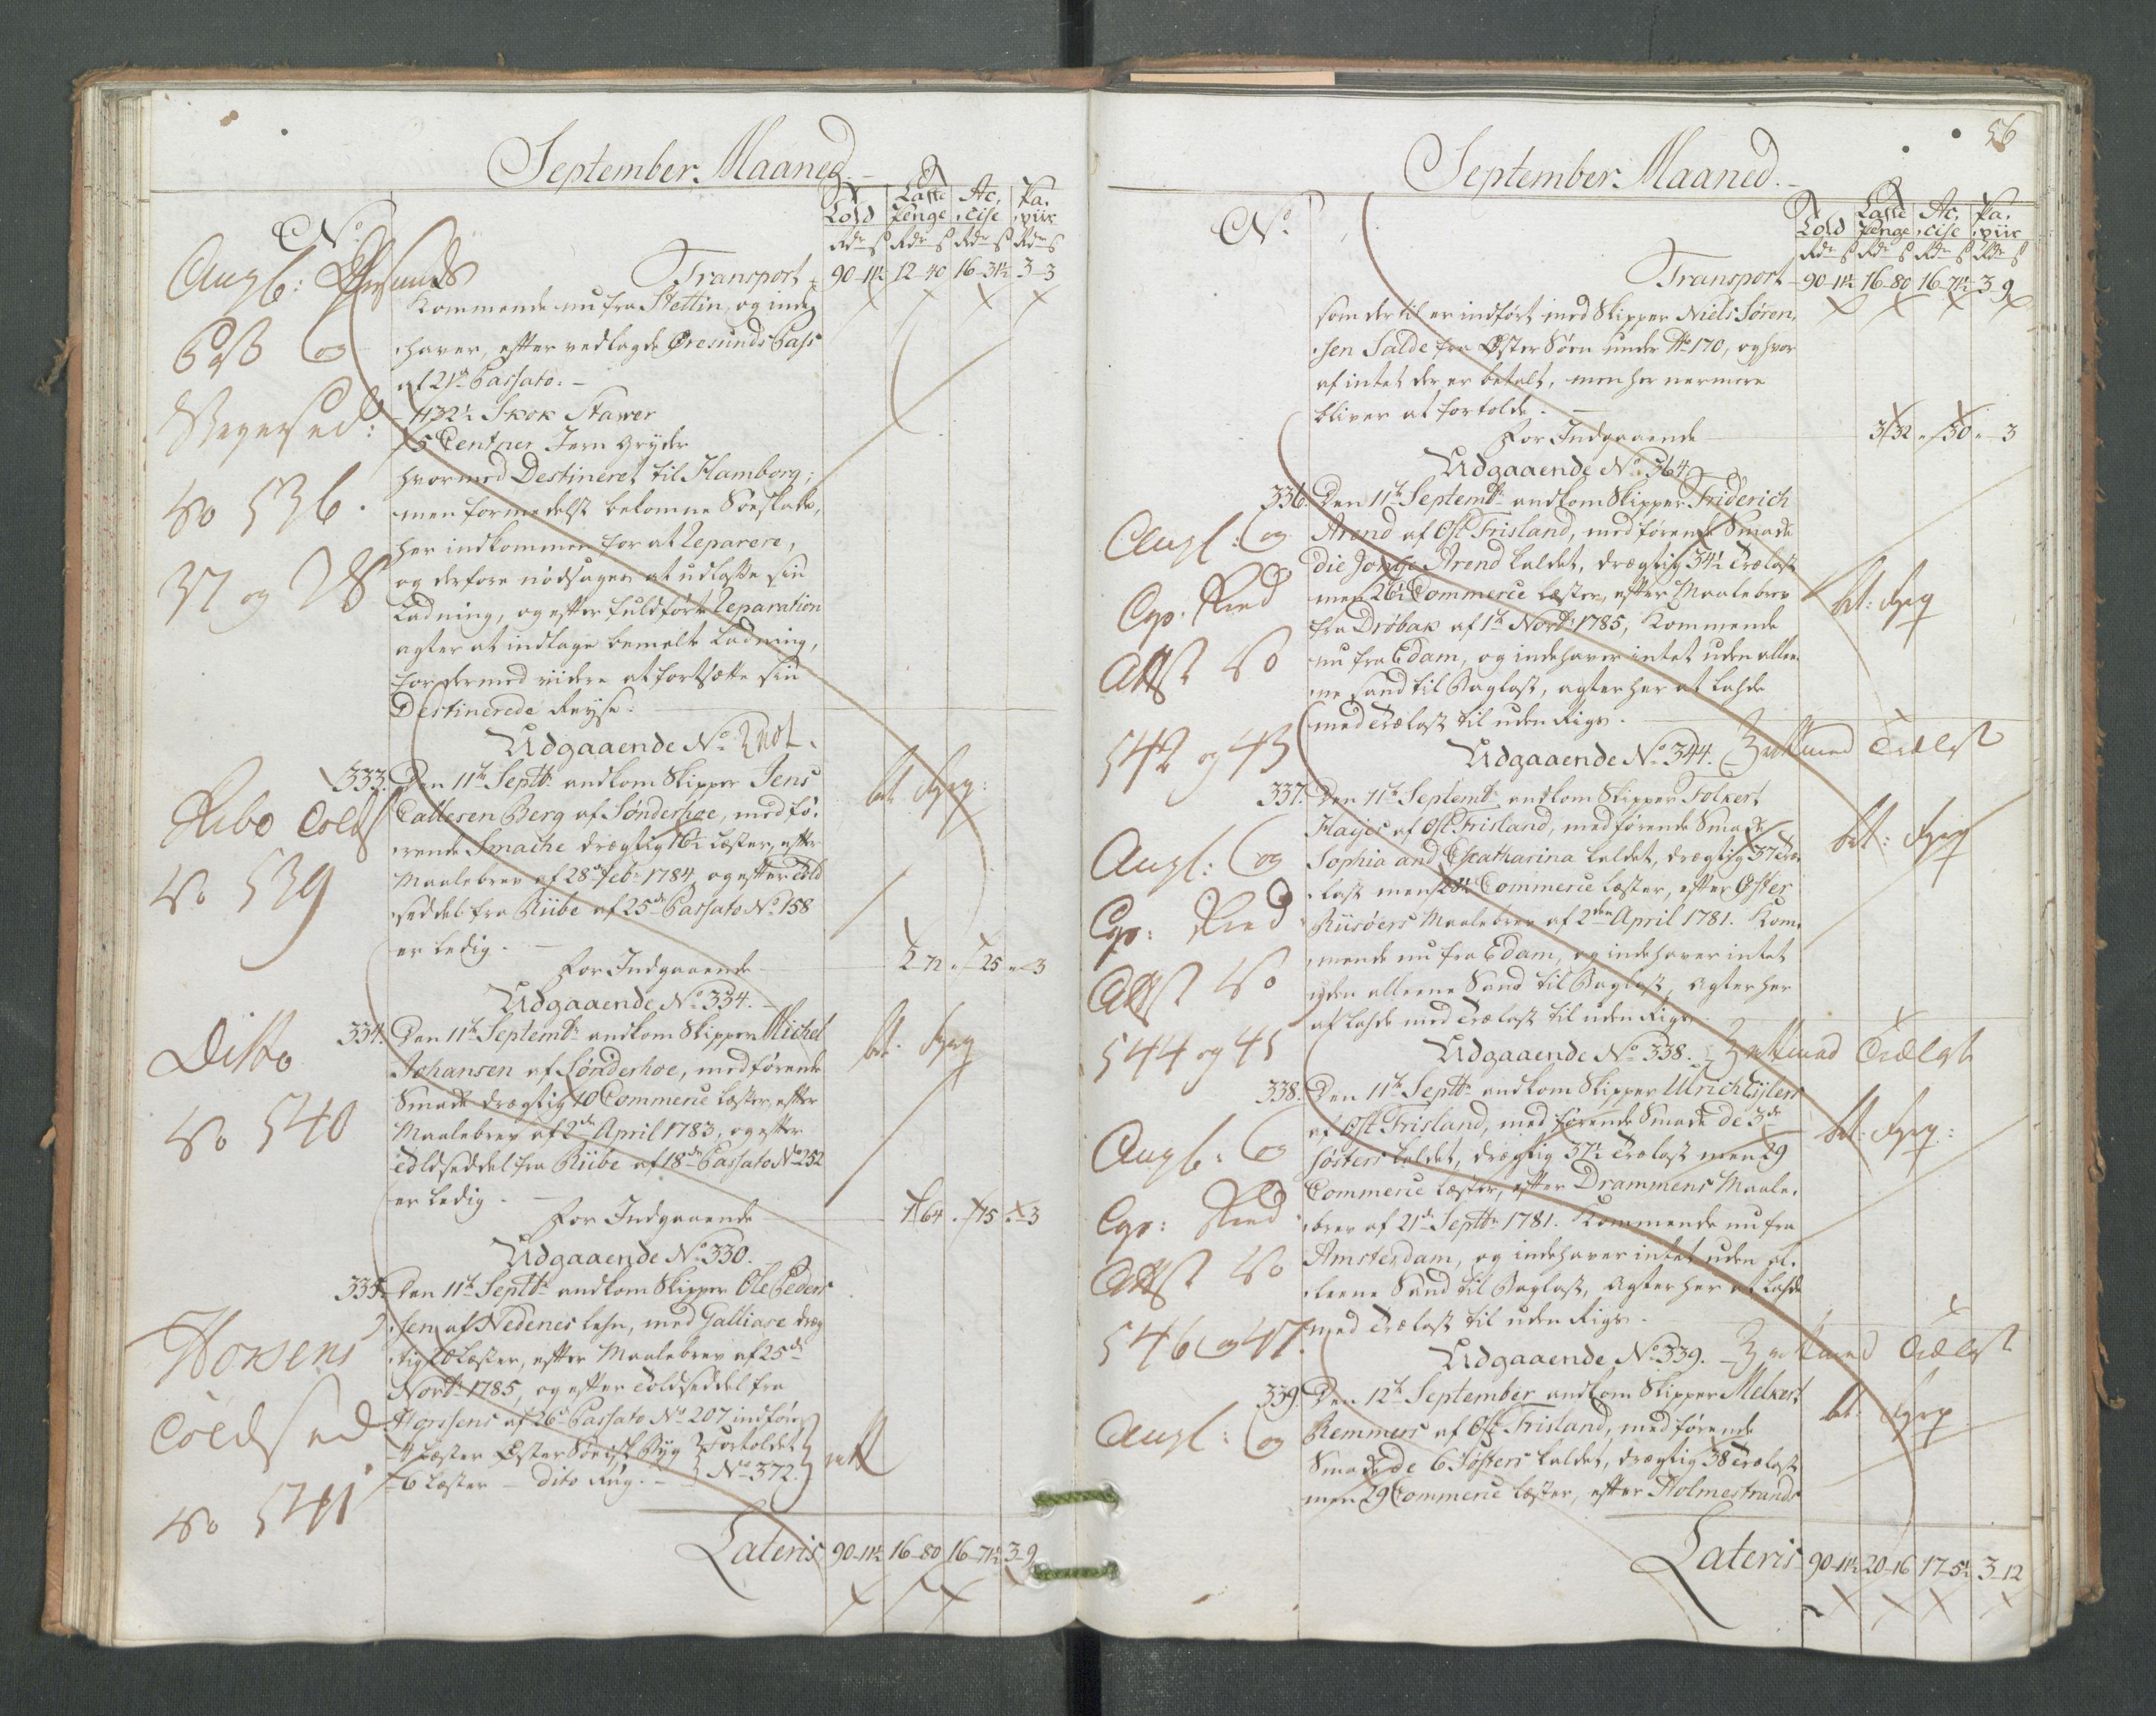 September Maaned.
No.
Told
Laste Penge
Ac, cise
Pa, piir
Rdr ß Rdr ß Rdr ß Rdr ß
Transport 90-11½ 12-40 16-31½ 3-3
Kommende nu fra Stettin, og inde
haver, efter vedlagde Øresunds Pass
af 21de Passato.
432½ Skok Stawer
Centner Jern Gryder
hvormed Destineret til Hamborg;
men formedelst bekomne Søeskade,
her indkommen for at Reparere,
og derfore nødsages at udlosse sin
Ladning, og efter fuldført Reparation
agter at indtage bemelte Ladning,
for dermed videre at fortsætte sin
Destinerede Reyse.
Angb: Øresunds
Pass og
No 536.
37 og 38
Udgaaende No.
333. Den 11te Septbr andkom Skipper Jens
Callesen Berg af Sønderhoe, med fø,
rende Smache drægtig 16½ Læster, efter
Maalebrev af 28de Febr 1784, og efter Told
seddel fra Riibe af 25de Passato No 158
er ledig.
For Indgaaende 2-72 - 25 - 3
Ribe Told
No 539
Udgaaende No. 334.
334. Den 11te Septembr andkom Skipper Michel
Johansen af Sønderhoe, med førende
Smack drægtig 10 Commerce Læster, efter
Maalebrev af 2de April 1783, og efter
Toldseddel fra Riibe af 18de Passato No 252
er ledig.
For Indgaaende 1-64 - 15 - 3
Ditto
No 540
Udgaaende No. 330.
335. Den 11te Septbr andkom Skipper Ole Peder
sen af Nedenes lehn, med Galliace dræg
tig 20 Læster, efter Maalebrev af 25de
Novbr 1785, og efter Toldseddel fra
Horsens af 26de Passato No 207 indfører
4 Læster Øster Søeisk Byg } Fortoldet
6 Læster — dito Rug. — } No. 372.
Horsens
Toldsed
No 541
Lateris 90-11½ 16-80 16-71½ 3-9
56
September Maaned.
No.
Told
Laste Penge
Ac, cise
Pa, piir
Rdr ß Rdr ß Rdr ß Rdr ß
Transport 90-11½ 16-80 16-71½ 3-9
som dertil er indført med Skipper Niels Søren,
sen Salde fra Øster Søen under No 170, og hvor
af intet der er betalt, men her nermere
bliver at fortolde.
For Indgaaende 3-32 - 30 - 3
Udgaaende No. 364
336. Den 11te Septembr andkom Skipper Friderich
Arend af Ost Frisland, med førende Smack
Die Jonge Arend kaldet, drægtig 34½ Trælast
men 26½ Commerce Læster, efter Maalebrev
fra Drøbak af 1te Novbr 1785, Kommende
nu fra Edam, og indehaver intet uden allee
ne Sand til Baglast, agter her at lahde
med Trælast til uden Rigs.
Angb: og
Att No
542 og 43
Udgaaende No. 344. med Trælast
337. Den 11te Septembr andkom Skipper Folkert
Hayes af Ost Frisland, med førende Smack
Sophia and Catharina kaldet, drægtig 37 Træ
last men 28½ Commerce Læster, efter Øster
Riisøers Maalebrev af 2den April 1781. Kom,
mende nu fra Edam, og indehaver intet
uden alleene Sand til Baglast, Agter her
at lahde med Trælast til uden Rigs.
Angb: og
Att No
544 og 45
Udgaaende No. 338. med Trælast
338. Den 11te Septbr andkom Skipper Ulrich Eylers
af Ost Frisland, med førende Smack de 3de
Søsters kaldet, drægtig 37½ Trælast men 29
Commerce Læster, efter Drammens Maale,
brev af 21de Septbr 1781. Kommende nu fra
Amsterdam, og indehaver intet uden al,
leene Sand til Baglast, Agter her at lahde
med Trælast til uden Rigs.
Angb: og
Att No
546 og 47.
Udgaaende No. 339. med Trælast
339. Den 12te September andkom Skipper Melkert
Remmers af Ost Frisland, med førende
Smack de 6 Søsters kaldet, drægtig 38 Trælast
men 29 Commerce Læster, efter Holmestrands
Angb: og
Lateris 90-11½ 20-16 17-5½ 3-12